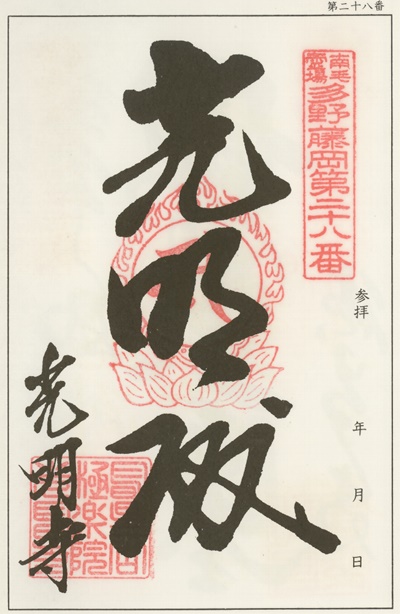 第二十八番
南毛霊場
多野藤岡第二十八番
参拝
年 月 日
光明殿
極楽院
光明寺